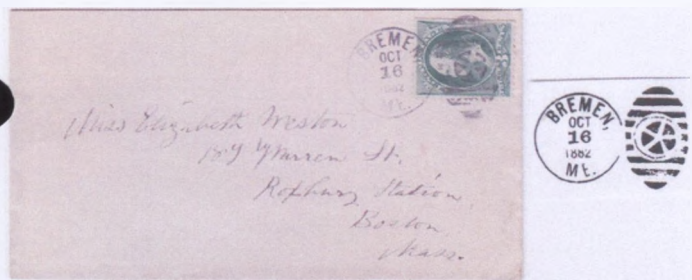 BREMEN,
OCT
16
1882
ME.
Miss Elizabeth Weston
Warren St.
Roxbury Station,
Boston
Mass.
BREMEN,
OCT
16
1882
ME.